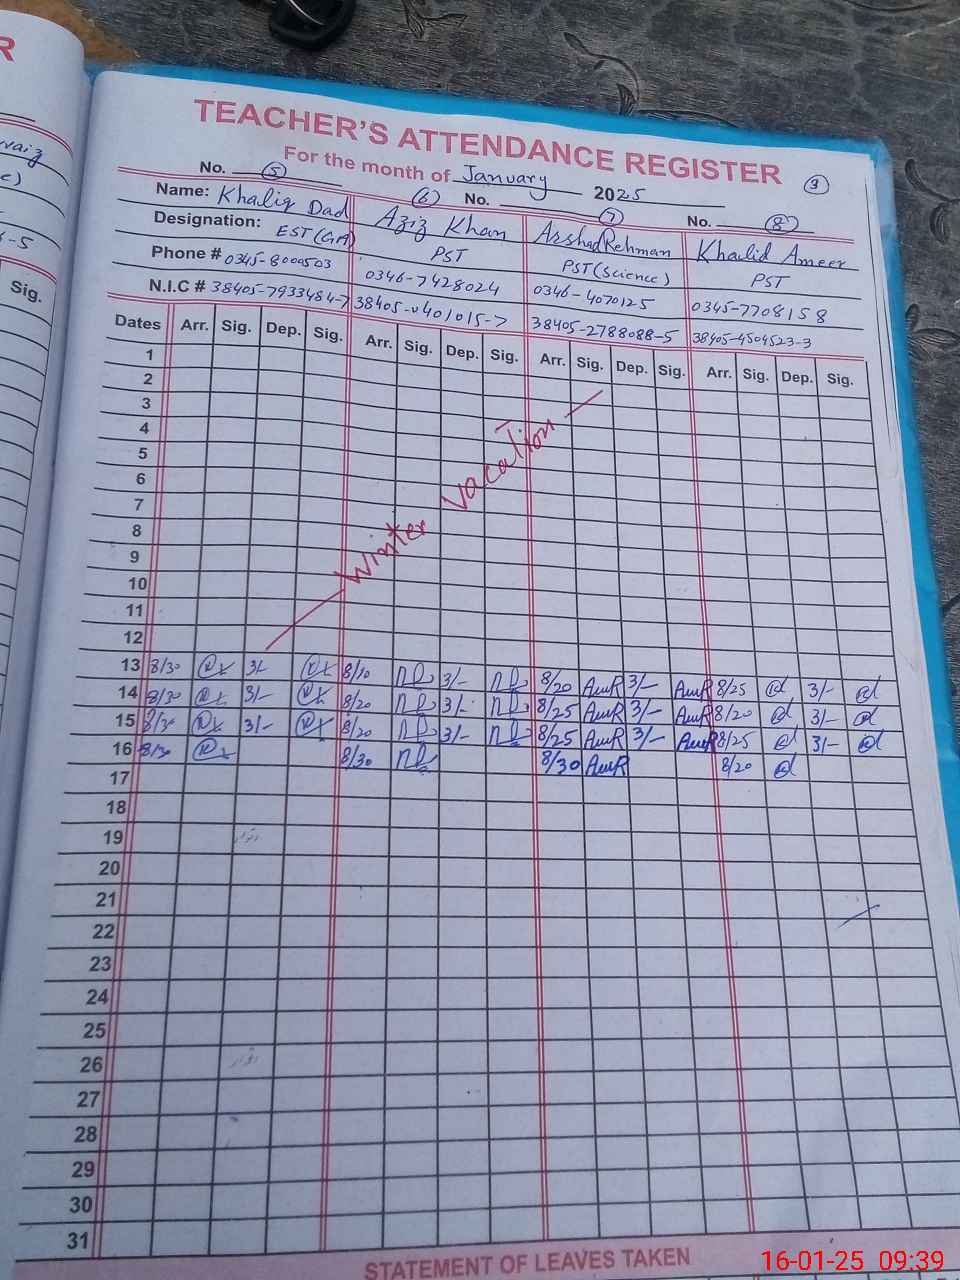 R
TEACHER'S ATTENDANCE REGISTER
For the month of January 2025
3
No. 5
6 No. 7
No. 8
Name: Khaliq Dad Aziz Khan Arshad Rehman Khalid Ameer
Designation: EST (GM) PST PST (Science) PST
Phone # 0345-8000503 0346-7428024 0346-4070125 0345-7708158
N.I.C # 38405-7933484-7 38405-0401015-7 38405-2788088-5 38405-4504523-3
Sig.
Dates Arr. Sig. Dep. Sig. Arr. Sig. Dep. Sig. Arr. Sig. Dep. Sig. Arr. Sig. Dep. Sig.
1
2
3
4
5
6
7
8
9
10
11
12
Winter Vacation
13 8/30 3/- 8/10 3/- 8/20 AmR 3/- AmR 8/25 3/-
14 8/30 3/- 8/20 3/- 8/25 AmR 3/- AmR 8/20 3/-
15 8/30 3/- 8/20 3/- 8/25 AmR 3/- AmR 8/25 3/-
16 8/30 8/30 8/30 AmR 8/20
17
18
19 اتوار
20
21
22
23
24
25
26 اتوار
27
28
29
30
31
STATEMENT OF LEAVES TAKEN
16-01-25 09:39